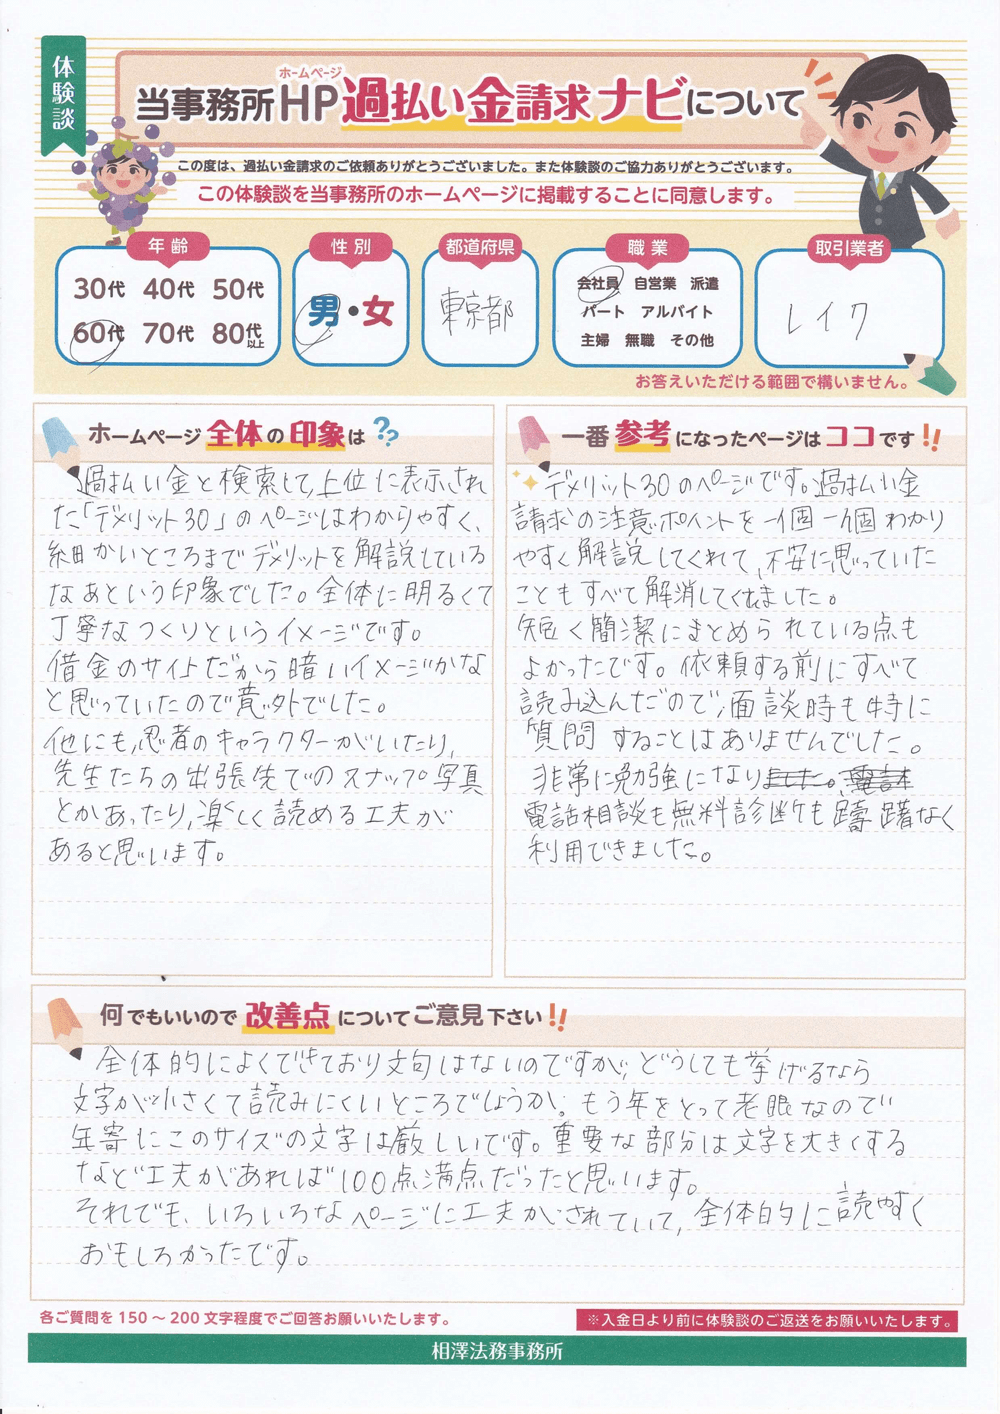 体験談
ホームページ
当事務所HP過払い金請求ナビについて
この度は、過払い金請求のご依頼ありがとうございました。また体験談のご協力ありがとうございます。
この体験談を当事務所のホームページに掲載することに同意します。
年齢
30代 40代 50代
60代 70代 80代以上
性別
男・女
都道府県
東京都
職業
会社員 自営業 派遣
パート アルバイト
主婦 無職 その他
取引業者
レイク
お答えいただける範囲で構いません。
ホームページ全体の印象は??
過払い金と検索して、上位に表示され
た「デメリット30」のページはわかりやすく、
細かいところまでデメリットを解説している
なあという印象でした。全体に明るくて
丁寧なつくりというイメージです。
借金のサイトだから暗いイメージかな
と思っていたので意外でした。
他にも、忍者のキャラクターがいたり、
先生たちの出張先でのスナップ写真
とかあったり、楽しく読める工夫が
あると思います。
一番参考になったページはココです!!
デメリット30のページです。過払い金
請求の注意ポイントを一個一個わかり
やすく解説してくれて、不安に思っていた
こともすべて解消してくれました。
短く簡潔にまとめられている点も
よかったです。依頼する前にすべて
読み込んだので、面談時も特に
質問することはありませんでした。
非常に勉強になりました。電話
電話相談も無料診断も躊躇なく
利用できました。
何でもいいので改善点についてご意見下さい!!
全体的によくできており文句はないのですが、どうしても挙げるなら
文字が小さくて読みにくいところでしょうか。もう年をとって老眼なので
年寄にこのサイズの文字は厳しいです。重要な部分は文字を大きくする
など工夫があれば100点満点だったと思います。
それでも、いろいろなページに工夫がされていて、全体的に読やすく
おもしろかったです。
各ご質問を150～200文字程度でご回答お願いいたします。
※入金日より前に体験談のご返送をお願いいたします。
相澤法務事務所